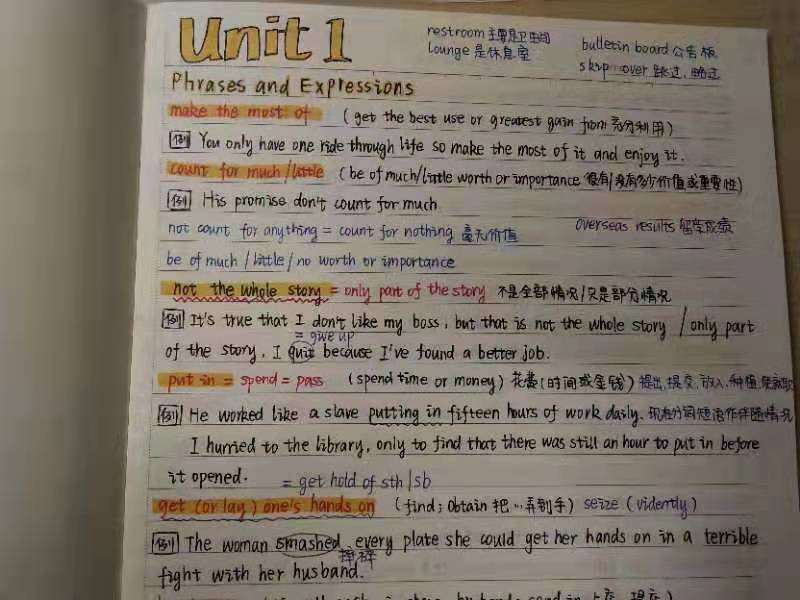 Unit 1
restroom 主要是卫生间
lounge 是休息室
bulletin board 公告板
skip over 跳过, 略过
Phrases and Expressions
make the most of (get the best use or greatest gain from 充分利用)
例 You only have one ride through life so make the most of it and enjoy it.
count for much/little (be of much/little worth or importance 很有/没有多少价值或重要性)
例 His promise don't count for much
not count for anything = count for nothing 毫无价值
overseas results 留学成绩
be of much / little / no worth or importance
not the whole story = only part of the story 不是全部情况/只是部分情况
例 It's true that I don't like my boss, but that is not the whole story / only part
= give up
of the story, I quit because I've found a better job.
put in = spend = pass (spend time or money) 花费(时间或金钱) 提出, 提交, 放入, 种植,
例 He worked like a slave putting in fifteen hours of work daily. 现在分词短语作伴随情况
I hurried to the library, only to find that there was still an hour to put in before
it opened.
= get hold of sth/sb
get (or lay) one's hands on (find; obtain 把…弄到手) seize (vidently)
例 The woman smashed every plate she could get her hands on in a terrible
摔碎
fight with her husband.